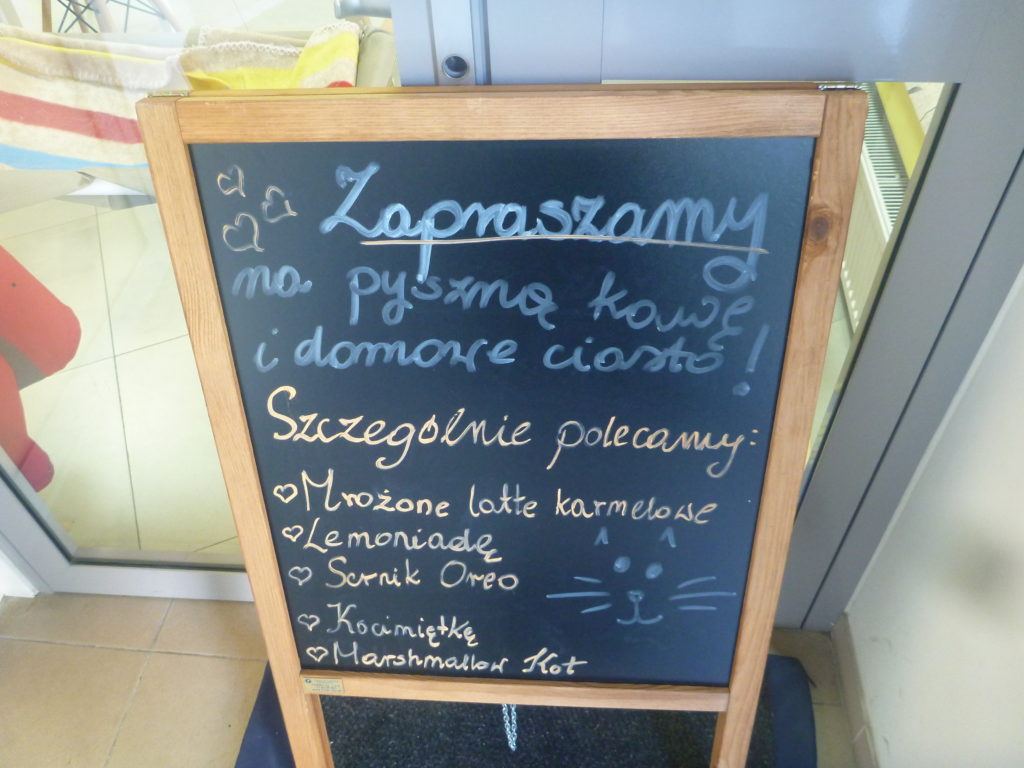 Zapraszamy
na pyszną kawę
i domowe ciasto!
Szczególnie polecamy:
Mrożone latte karmelowe
Lemoniadę
Sernik Oreo
Kocimiętkę
Marshmallow Kot